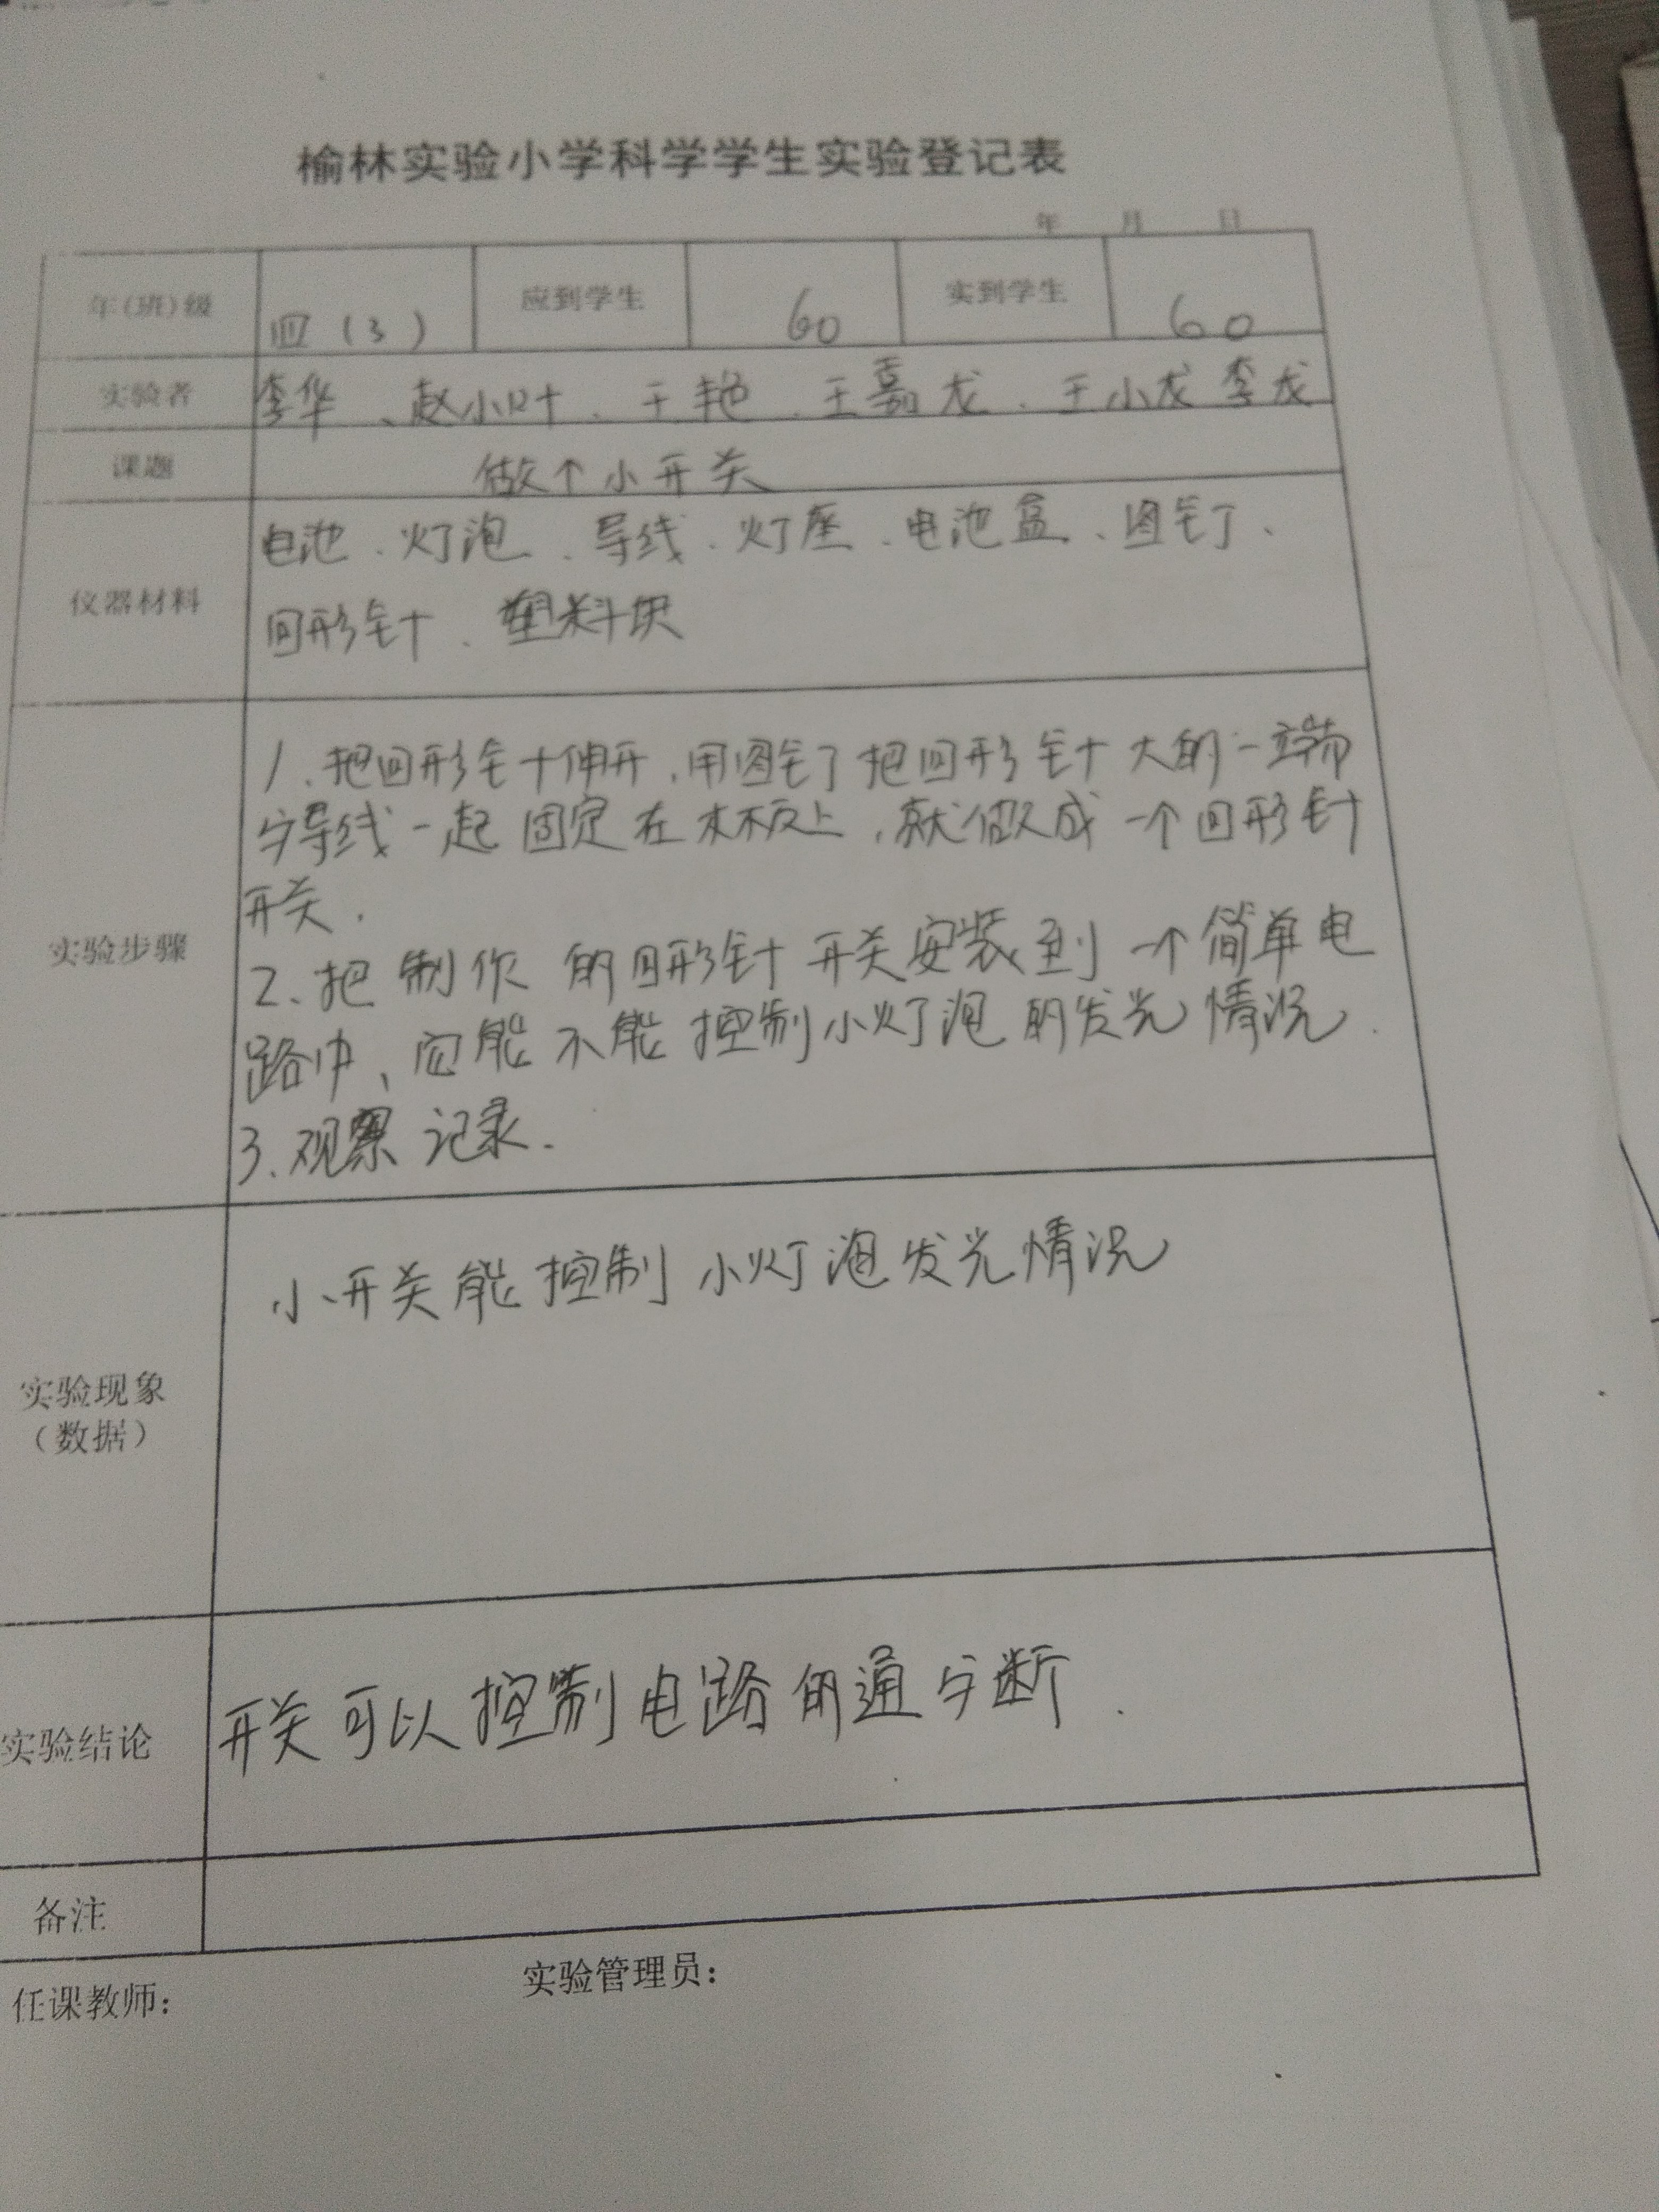 榆林实验小学科学学生实验登记表
年 月 日
年(班)级 四(3) 应到学生 60 实到学生 60
实验者 李华、赵小叶、王艳、王嘉龙、王小龙 李龙
课题 做个小开关
仪器材料
电池、灯泡、导线、灯座、电池盒、图钉、
回形针、塑料块
实验步骤
1、把回形针伸开,用图钉把回形针大的一端
与导线一起固定在木板上,就做成一个回形针
开关.
2、把制作的回形针开关安装到一个简单电
路中、它能不能控制小灯泡的发光情况.
3、观察记录.
实验现象
(数据)
小开关能控制小灯泡发光情况
实验结论
开关可以控制电路的通与断.
备注
任课教师: 实验管理员: